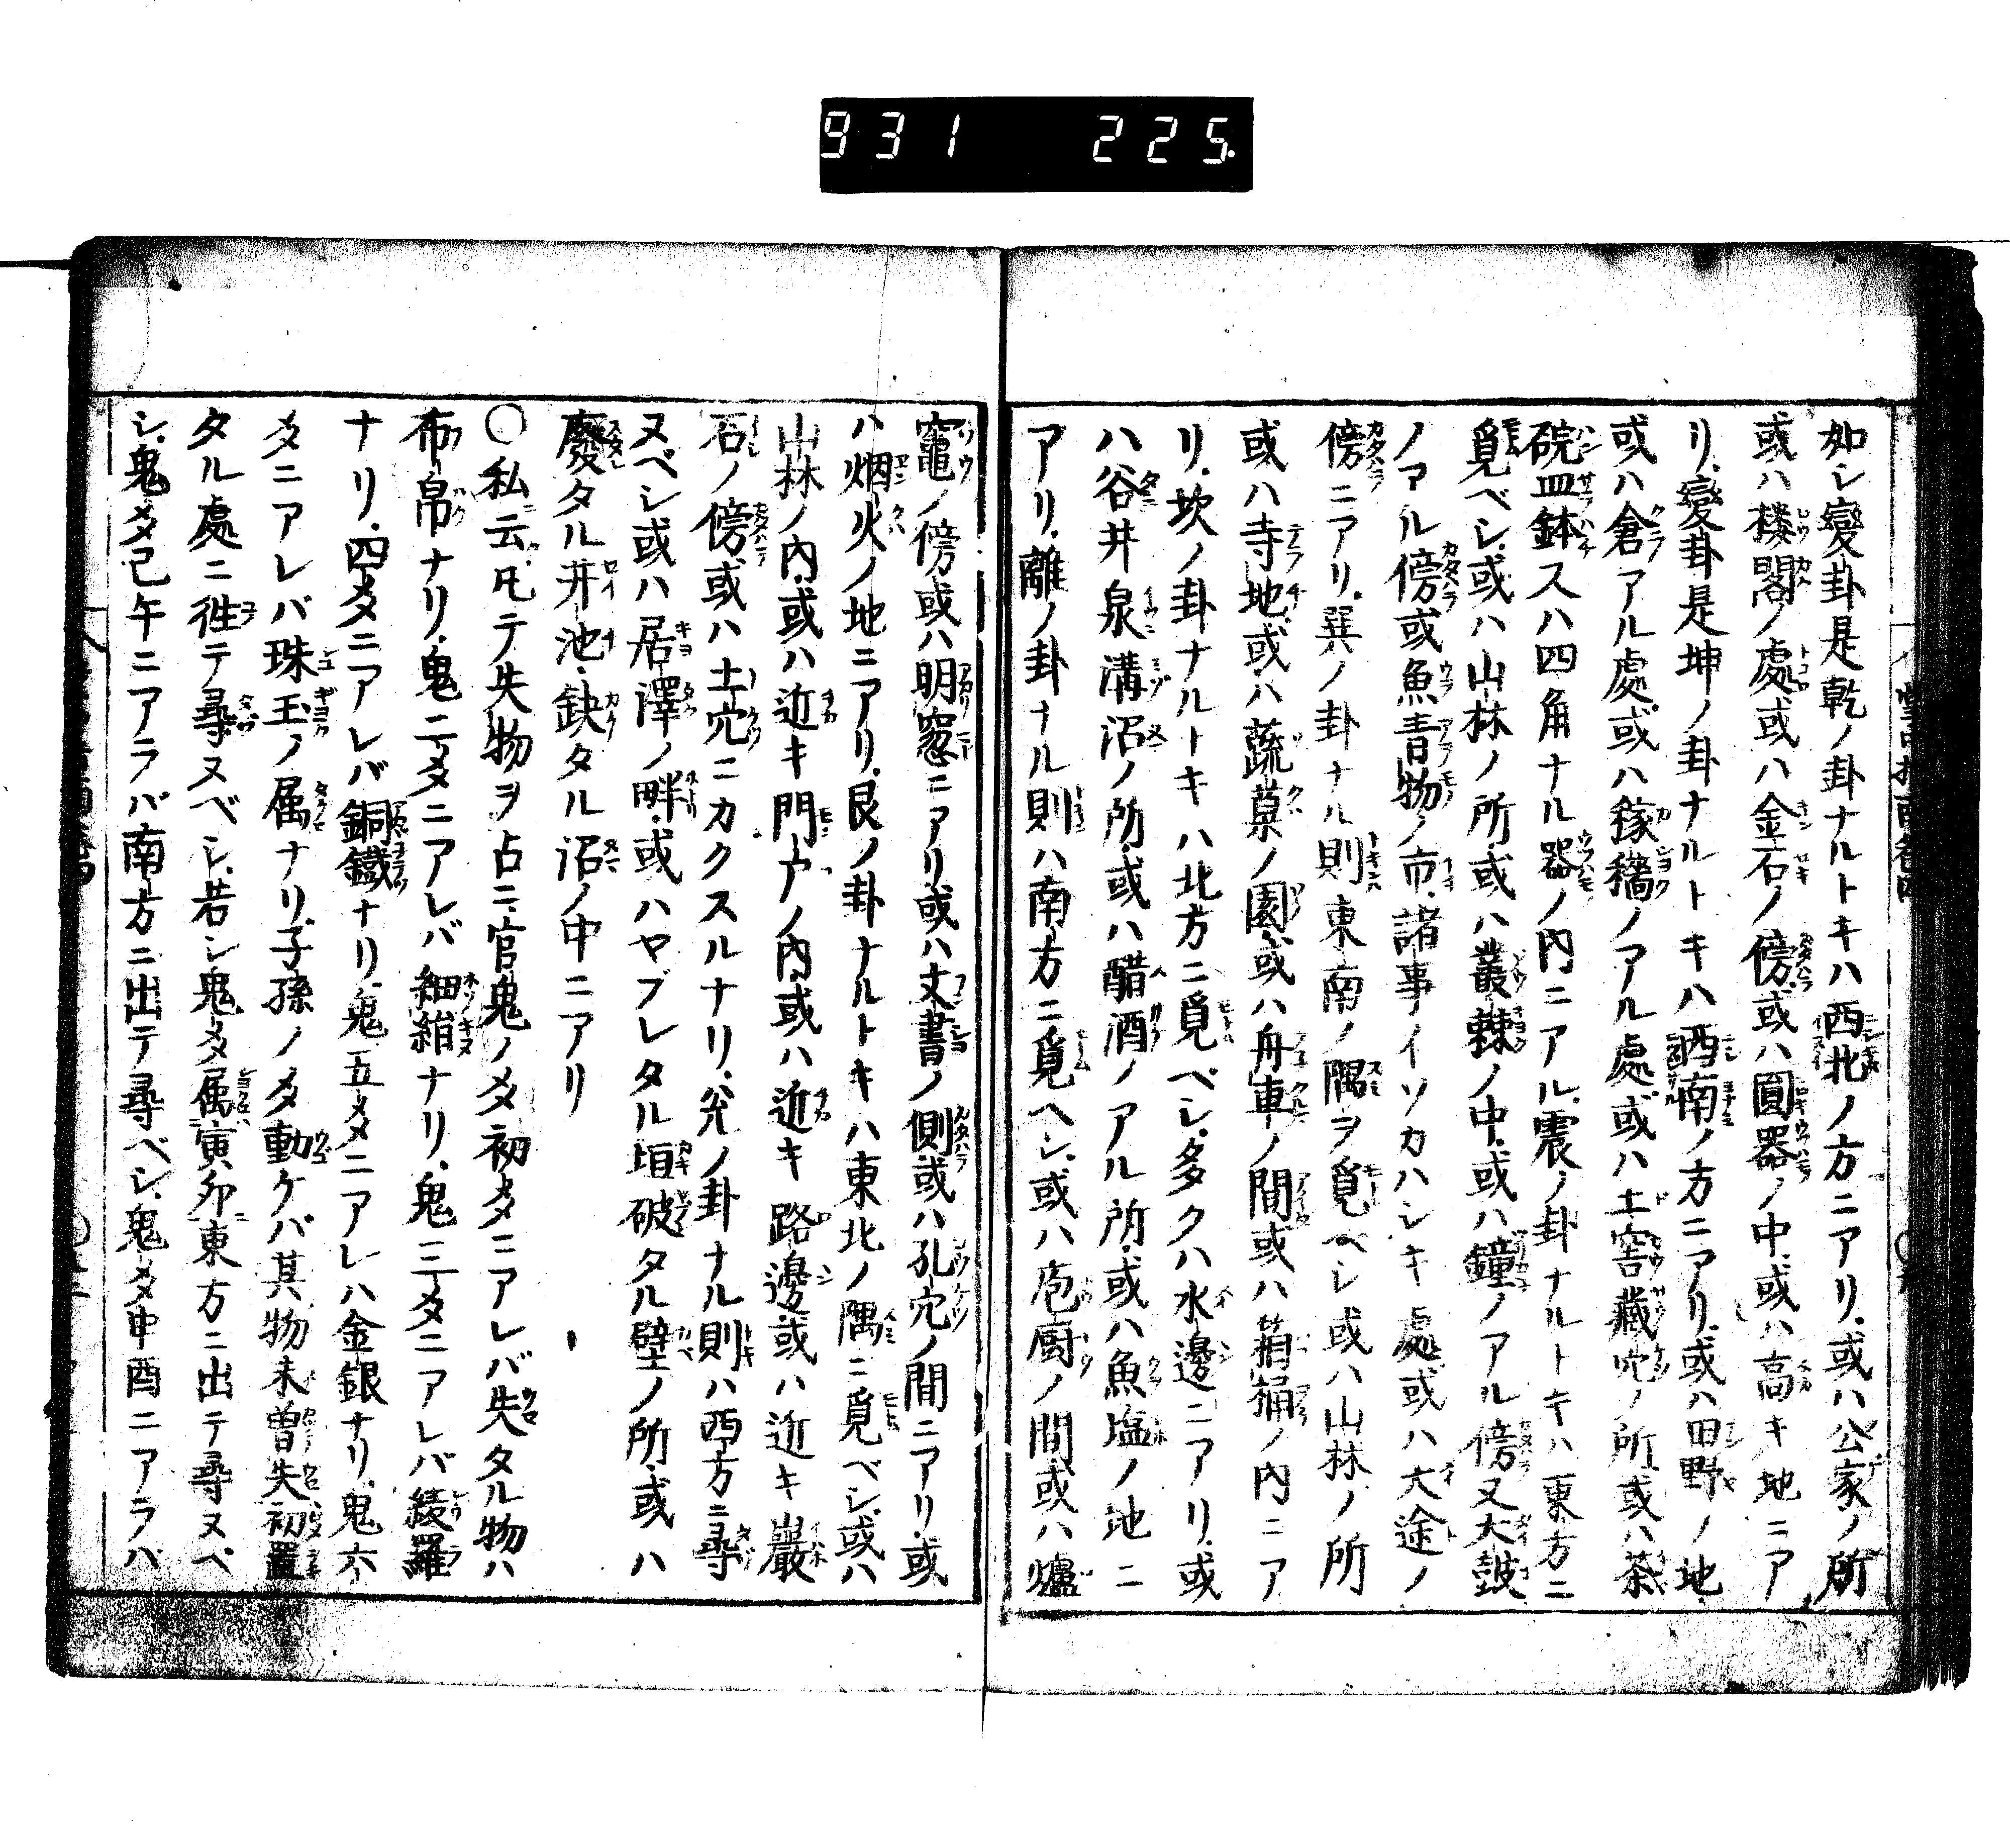 931 225.
如シ變卦是乾ノ卦ナルトキハ西北ノ方ニアリ或ハ公家ノ所
或ハ樓閣ノ處或ハ金石ノ傍或ハ圓器ノ中或ハ高キ地ニア
リ變卦是坤ノ卦ナルトキハ西南ノ方ニアリ或ハ田野ノ地
或ハ倉アル處或ハ稼穡ノアル處或ハ土窖藏穴ノ所或ハ茶
碗皿鉢スハ四角ナル器ノ内ニアル震ノ卦ナルトキハ東方ニ
覓ベシ或ハ山林ノ所或ハ叢棘ノ中或ハ鐘ノアル傍又大鼓
ノアル傍或魚青物ノ市諸事イソカハシキ處或ハ大途ノ
傍ニアリ巽ノ卦ナル則東南ノ隅ヲ覓ベシ或ハ山林ノ所
或ハ寺地或ハ蔬菓ノ園或ハ舟車ノ間或ハ箱桶ノ内ニア
リ坎ノ卦ナルトキハ北方ニ覓ベシ多クハ水邊ニアリ或
ハ谷井泉溝沼ノ所或ハ醋酒ノアル所或ハ魚塩ノ地ニ
アリ離ノ卦ナル則ハ南方ニ覓ヘシ或ハ庖廚ノ間或ハ爐
竈ノ傍或ハ明窓ニアリ或ハ文書ノ側或ハ孔穴ノ間ニアリ或
ハ烟火ノ地ニアリ艮ノ卦ナルトキハ東北ノ隅ニ覓ベシ或ハ
山林ノ内或ハ近キ門戸ノ内或ハ近キ路邊或ハ近キ巖
石ノ傍或ハ土穴ニカクスルナリ兌ノ卦ナル則ハ西方ニ尋
ヌベシ或ハ居澤ノ畔或ハヤブレタル垣破タル壁ノ所或ハ
廢タル井池缺タル沼ノ中ニアリ
〇私云凡テ失物ヲ占ニ官鬼ノ爻初爻ニアレバ失タル物ハ
布帛ナリ鬼二爻ニアレバ細絹ナリ鬼三爻ニアレバ綾羅
ナリ四爻ニアレバ銅鐵ナリ鬼五爻ニアレハ金銀ナリ鬼六
爻ニアレバ珠玉ノ属ナリ子孫ノ爻動ケバ其物未曽失初置
タル處ニ徃テ尋ヌベシ若シ鬼爻属寅卯東方ニ出テ尋ヌベ
シ鬼爻己午ニアラバ南方ニ出テ尋ベシ鬼爻申酉ニアラバ